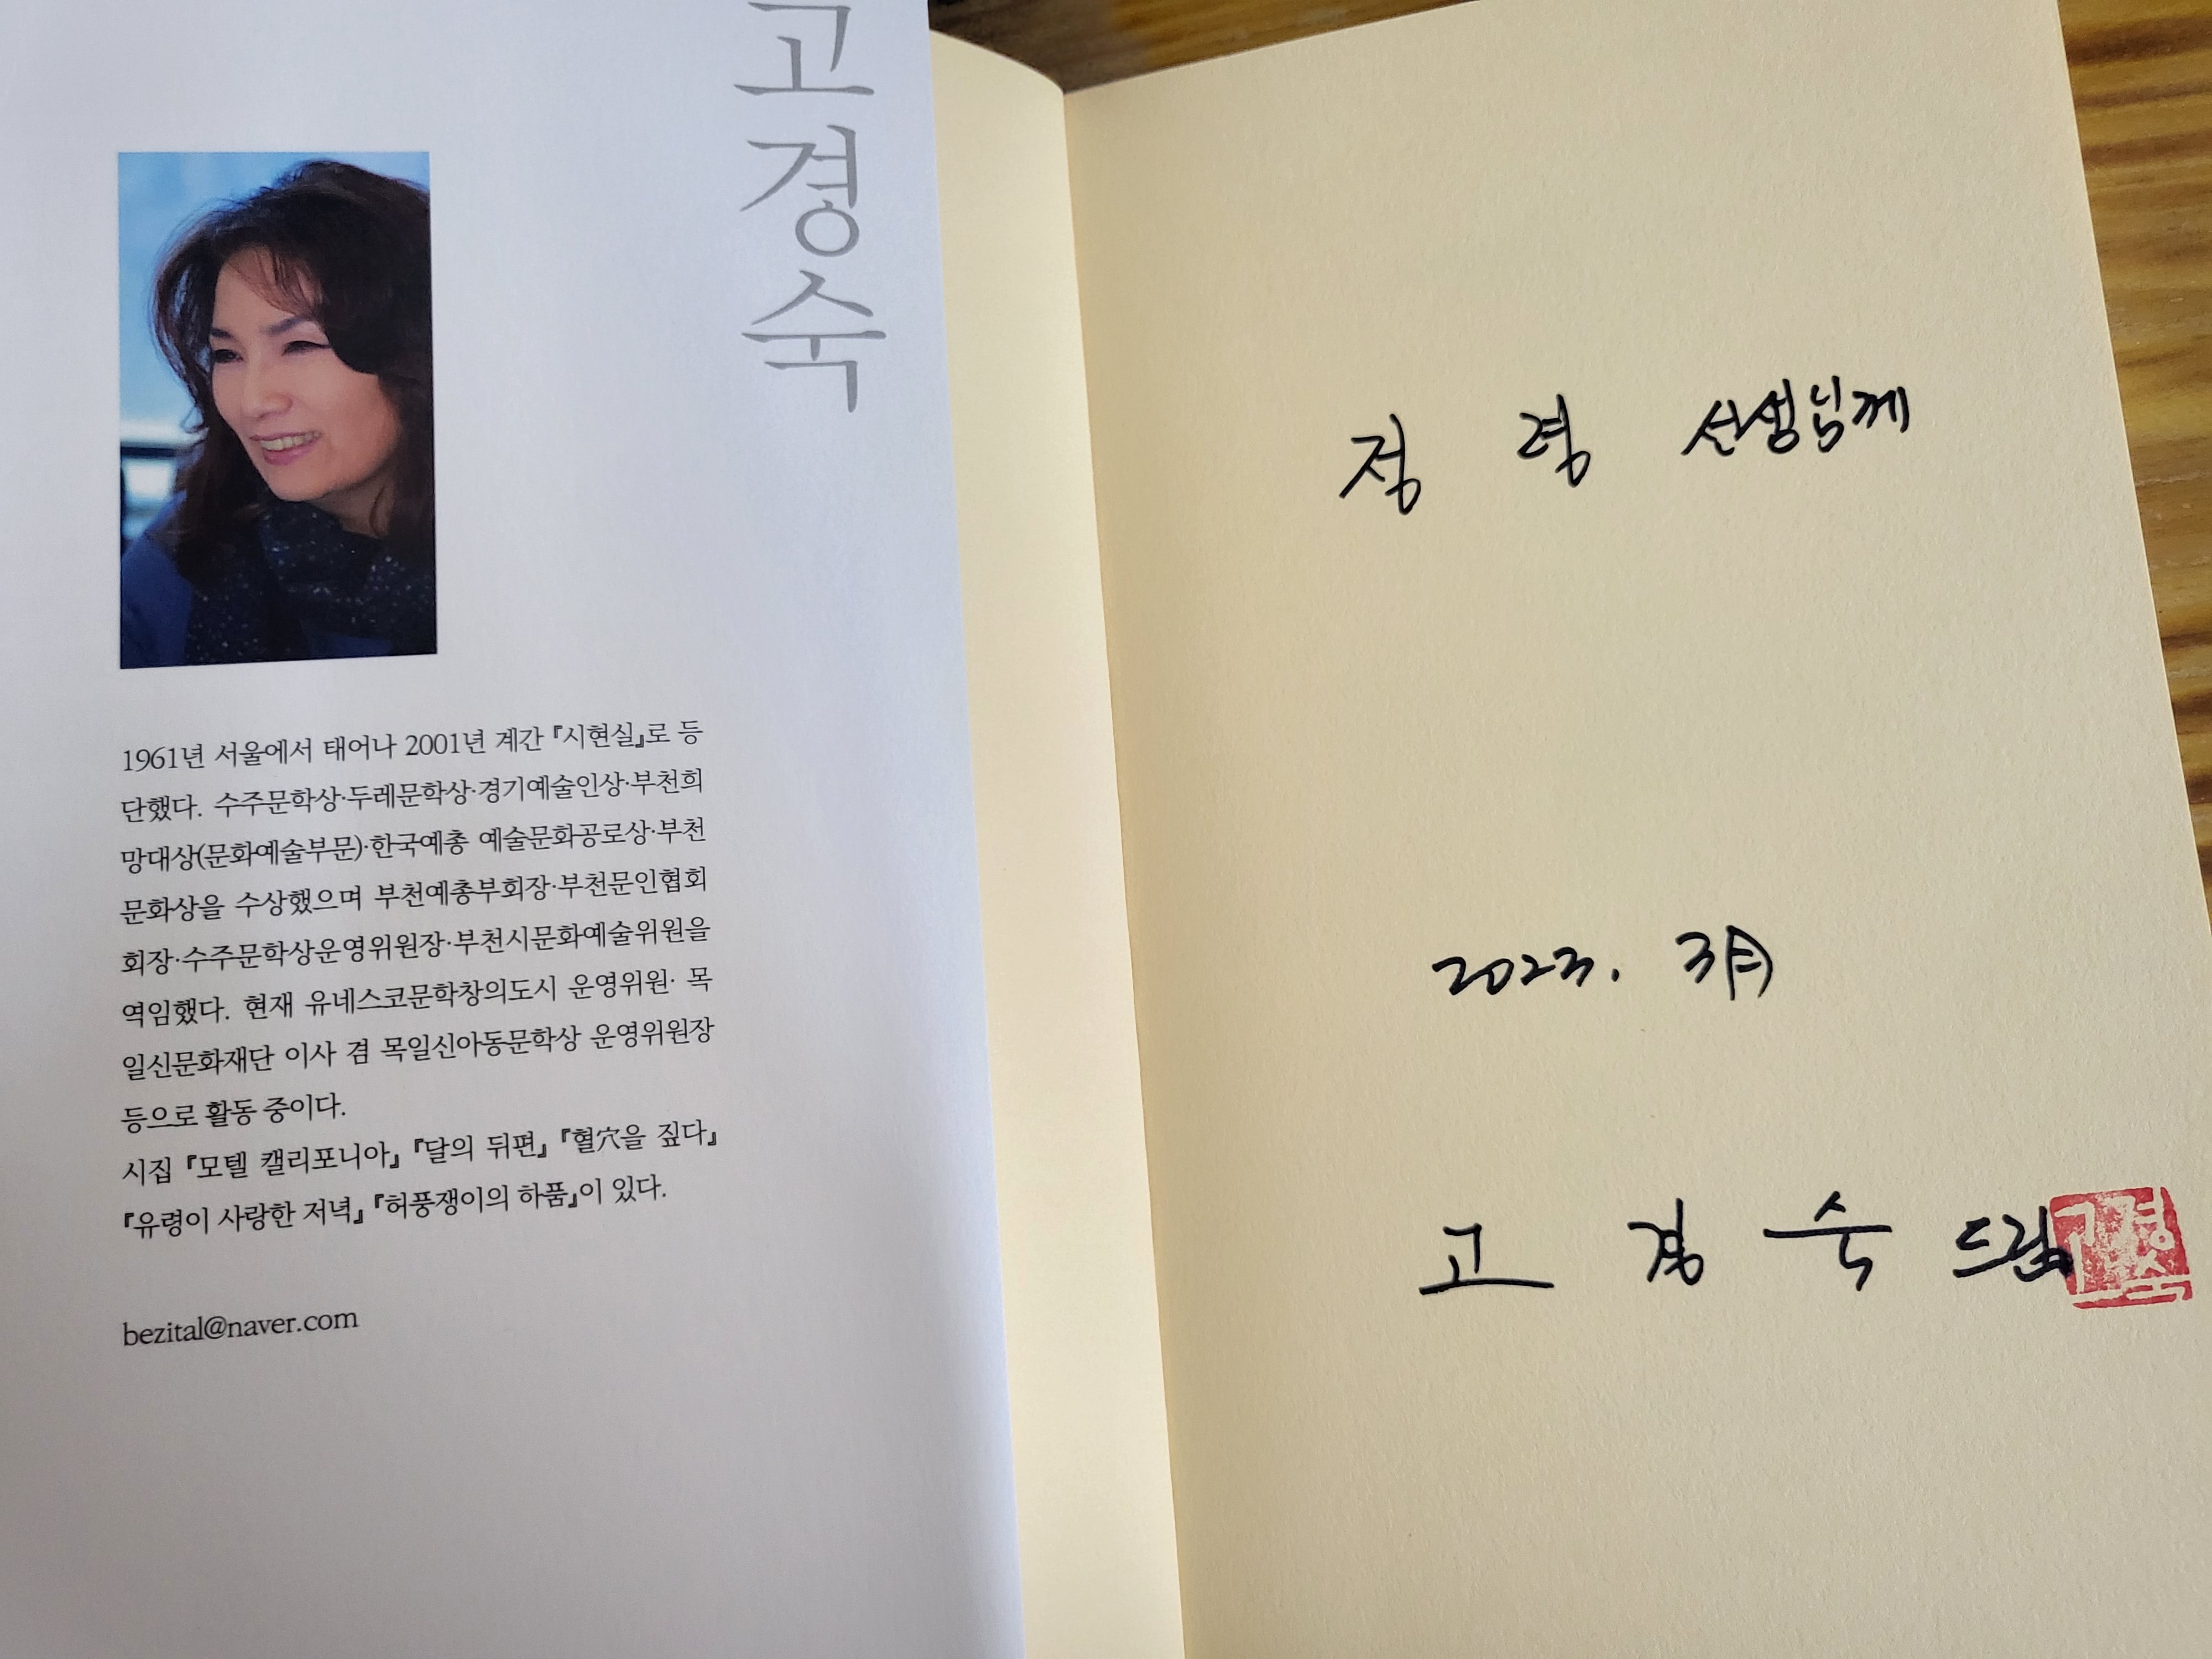 고경숙
1961년 서울에서 태어나 2001년 계간 『시현실』로 등
단했다. 수주문학상·두레문학상·경기예술인상·부천희
망대상(문화예술부문)·한국예총 예술문화공로상·부천
문화상을 수상했으며 부천예총부회장·부천문인협회
회장·수주문학상운영위원장·부천시문화예술위원을
역임했다. 현재 유네스코문학창의도시 운영위원· 목
일신문화재단 이사 겸 목일신아동문학상 운영위원장
등으로 활동 중이다.
시집 『모텔 캘리포니아』 『달의 뒤편』 『혈穴을 짚다』
『유령이 사랑한 저녁』 『허풍쟁이의 하품』이 있다.
bezital@naver.com
정 령 선생님께
2023. 3月
고 경 숙 드림
고경숙